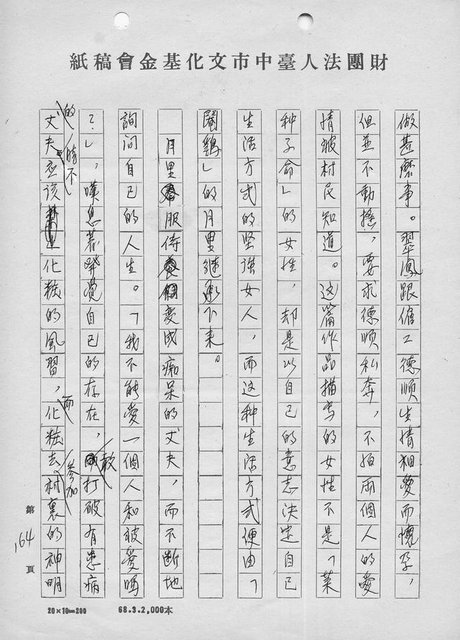 財團法人臺中市文化基金會稿紙
做甚麼事。翠鳳跟僱工德順生情相愛而懷孕，
但並不動搖，要求德順私奔，不怕兩個人的愛
情被村民知道。這篇作品描寫的女性不是「菜
種子命」的女性，却是以自己的意志決定自己
生活方式的坚強女人，而這种生活方式便由「
閹鷄」的月里継承下來。
月里服侍變成痴呆的丈夫，而不断地
詢問自己的人生。「我不能愛一個人和被愛嗎
？」，嘆息着感覺自己的存在，敢打破有患病
的丈夫時不應該化粧的風習，而化粧去參加村裏的神明
第164頁
20×10=200
68.3.2,000本